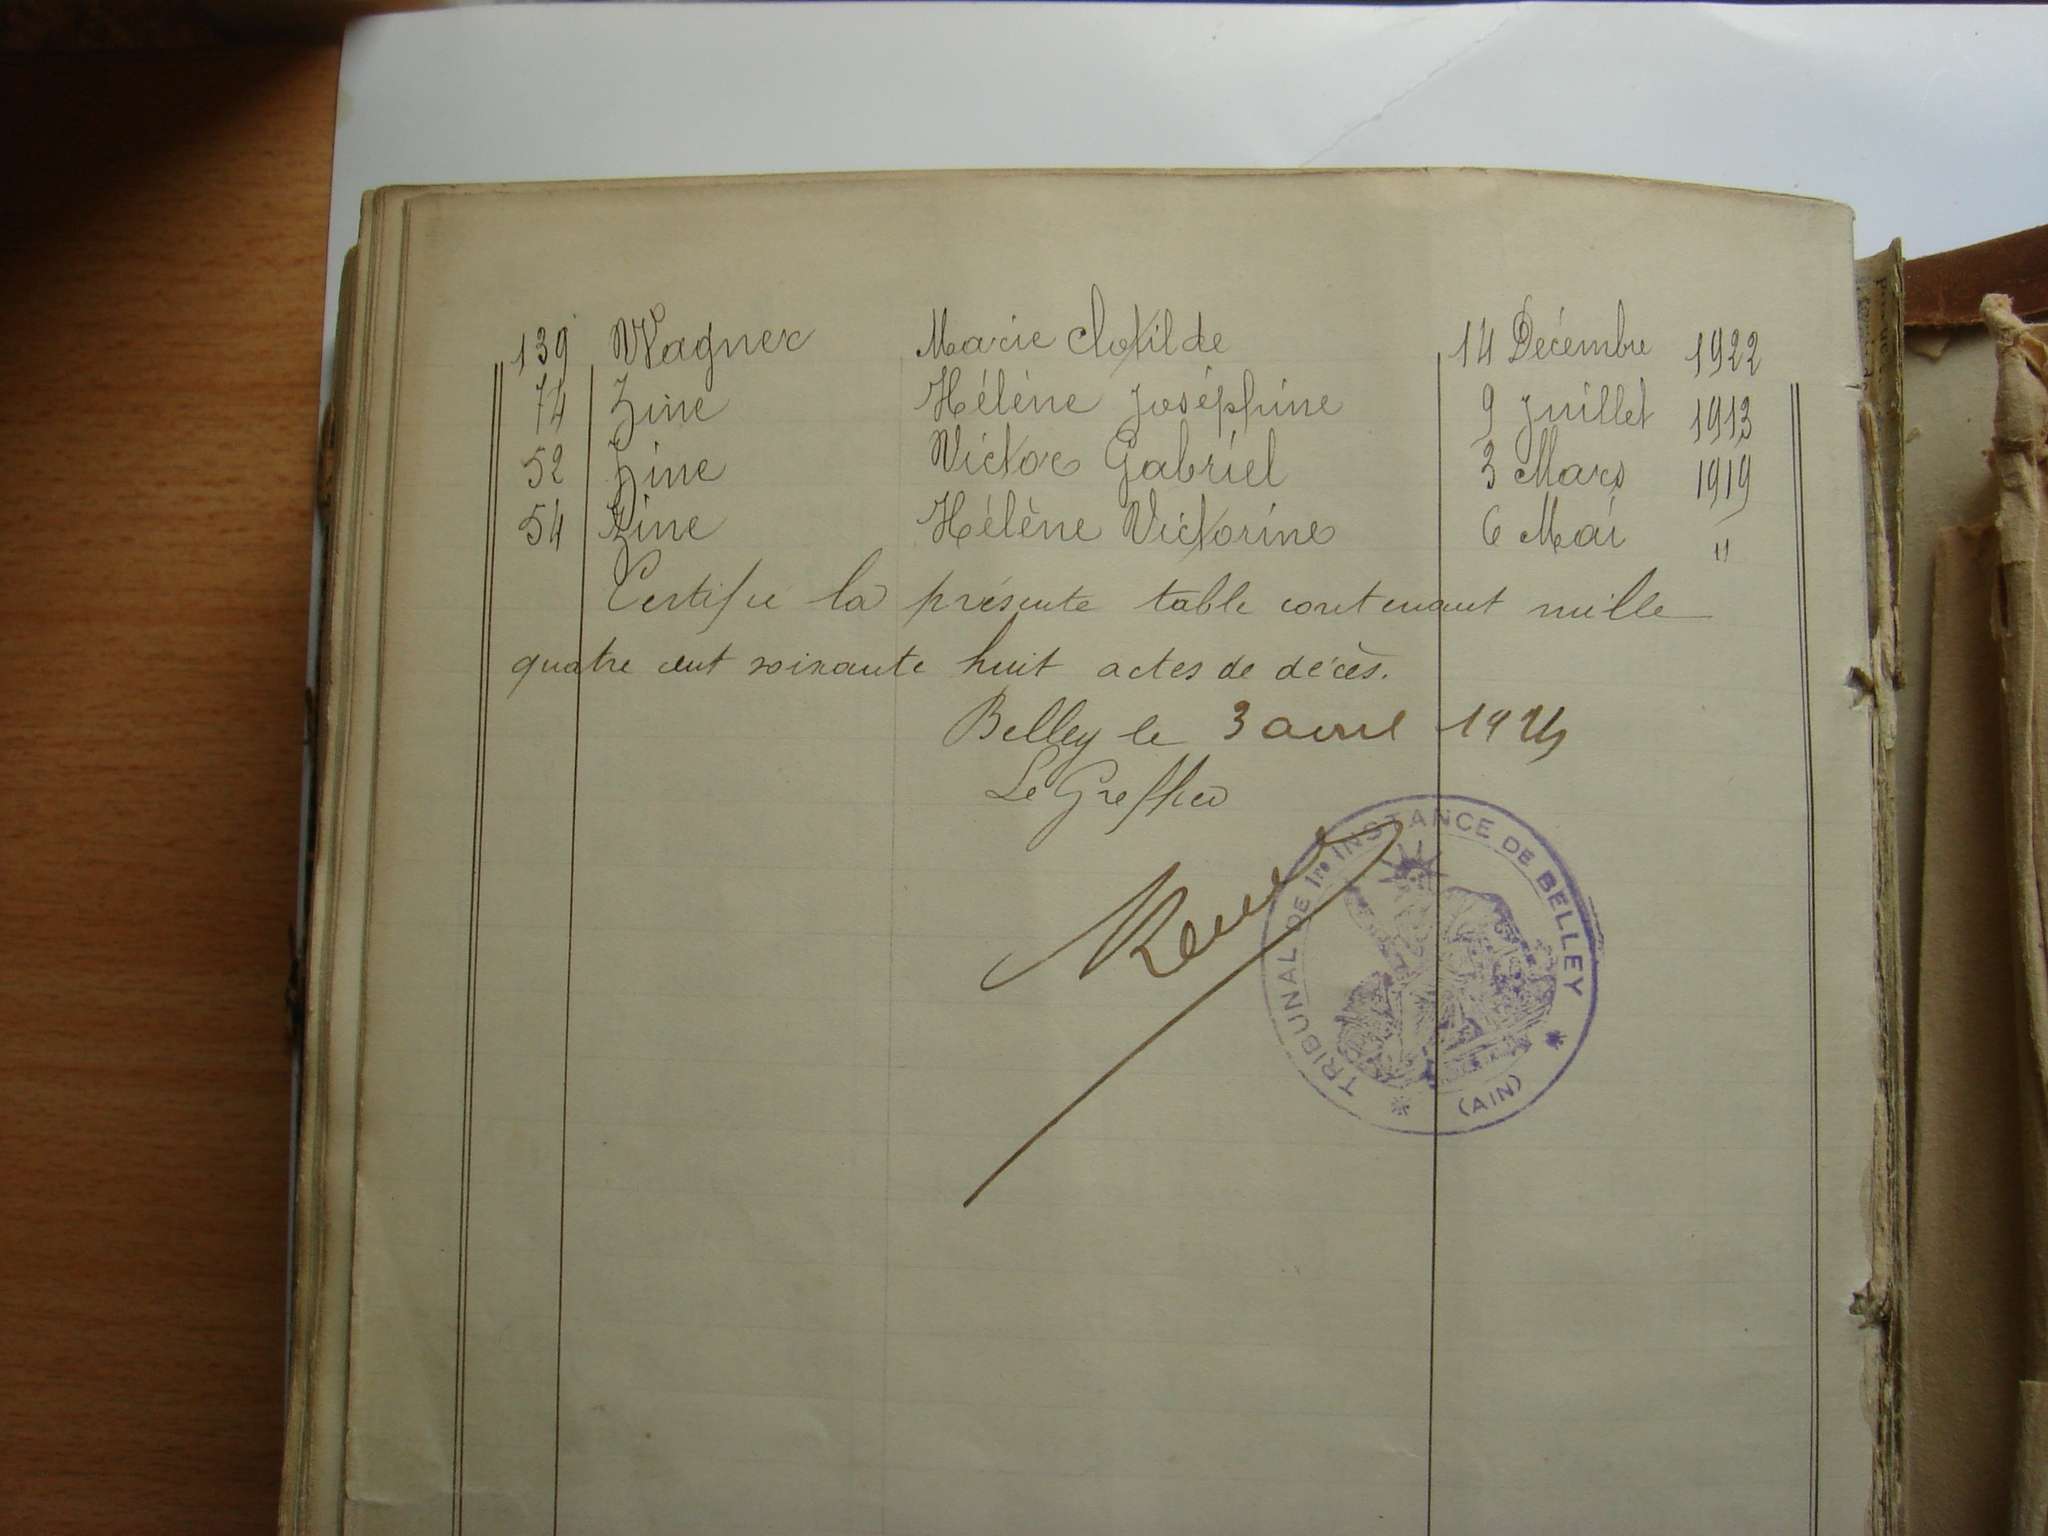 139 Wagner Marie Clotilde 14 Décembre 1922
74 Zine Hélène Joséphine 9 Juillet 1913
52 Zine Victor Gabriel 3 Mars 1919
54 Zine Hélène Victorine 6 Mai "
Certifié la présente table contenant mille
quatre cent soixante huit actes de décès.
Belley le 3 avril
Le Greffier
TRIBUNAL DE 1re INSTANCE DE BELLEY
(AIN)